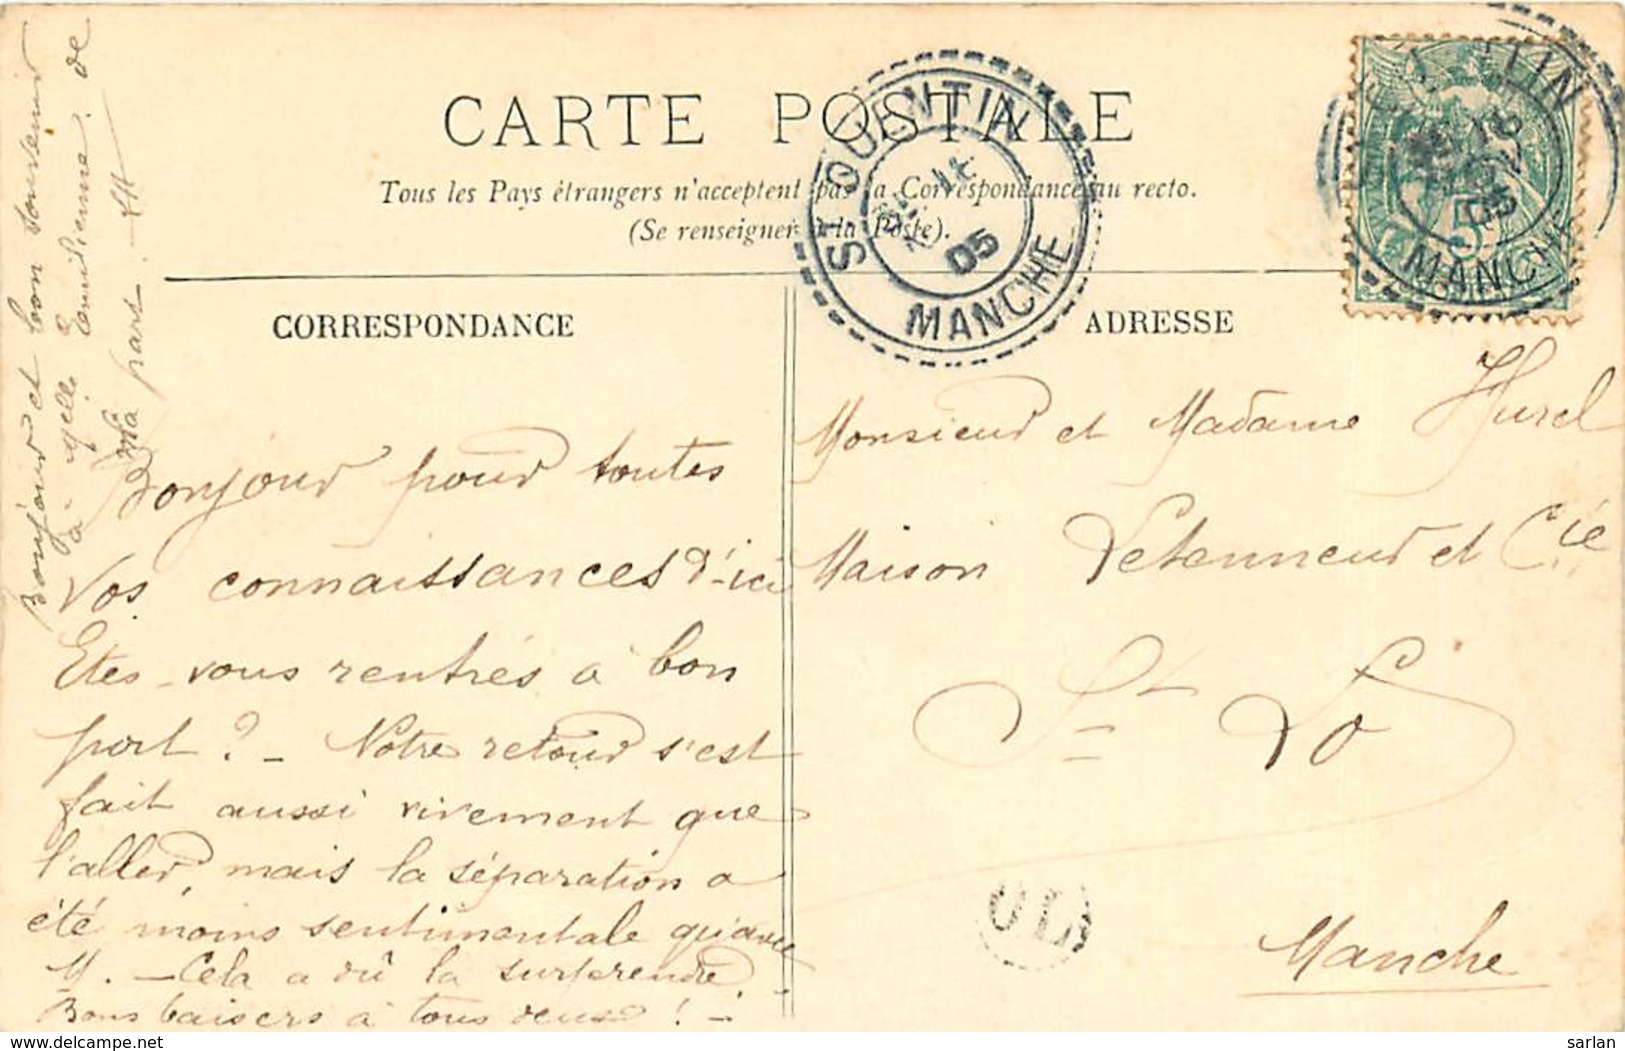 CARTE POSTALE
Tous les Pays étrangers n'acceptent pas la Correspondance au recto.
(Se renseigner à la Poste).
CORRESPONDANCE
ADRESSE
ST QUENTIN
05
MANCHE
LIN
05
MANCHE
5
Bonjour et bon souvenir
à Melle Tondienne. de
ma part.
Bonjour pour toutes
Vos connaissances d'ici
Etes-vous rentrés à bon
port ? - Notre retour s'est
fait aussi vivement que
l'aller, mais la séparation a
été moins sentimentale qu'avec
M. - Cela a dû la surprendre.
Bons baisers à tous deux ! -
Monsieur et Madame Hurel
Maison Letenneur et Cie
St Lo
Manche
OL
www.delcampe.net
sarlan